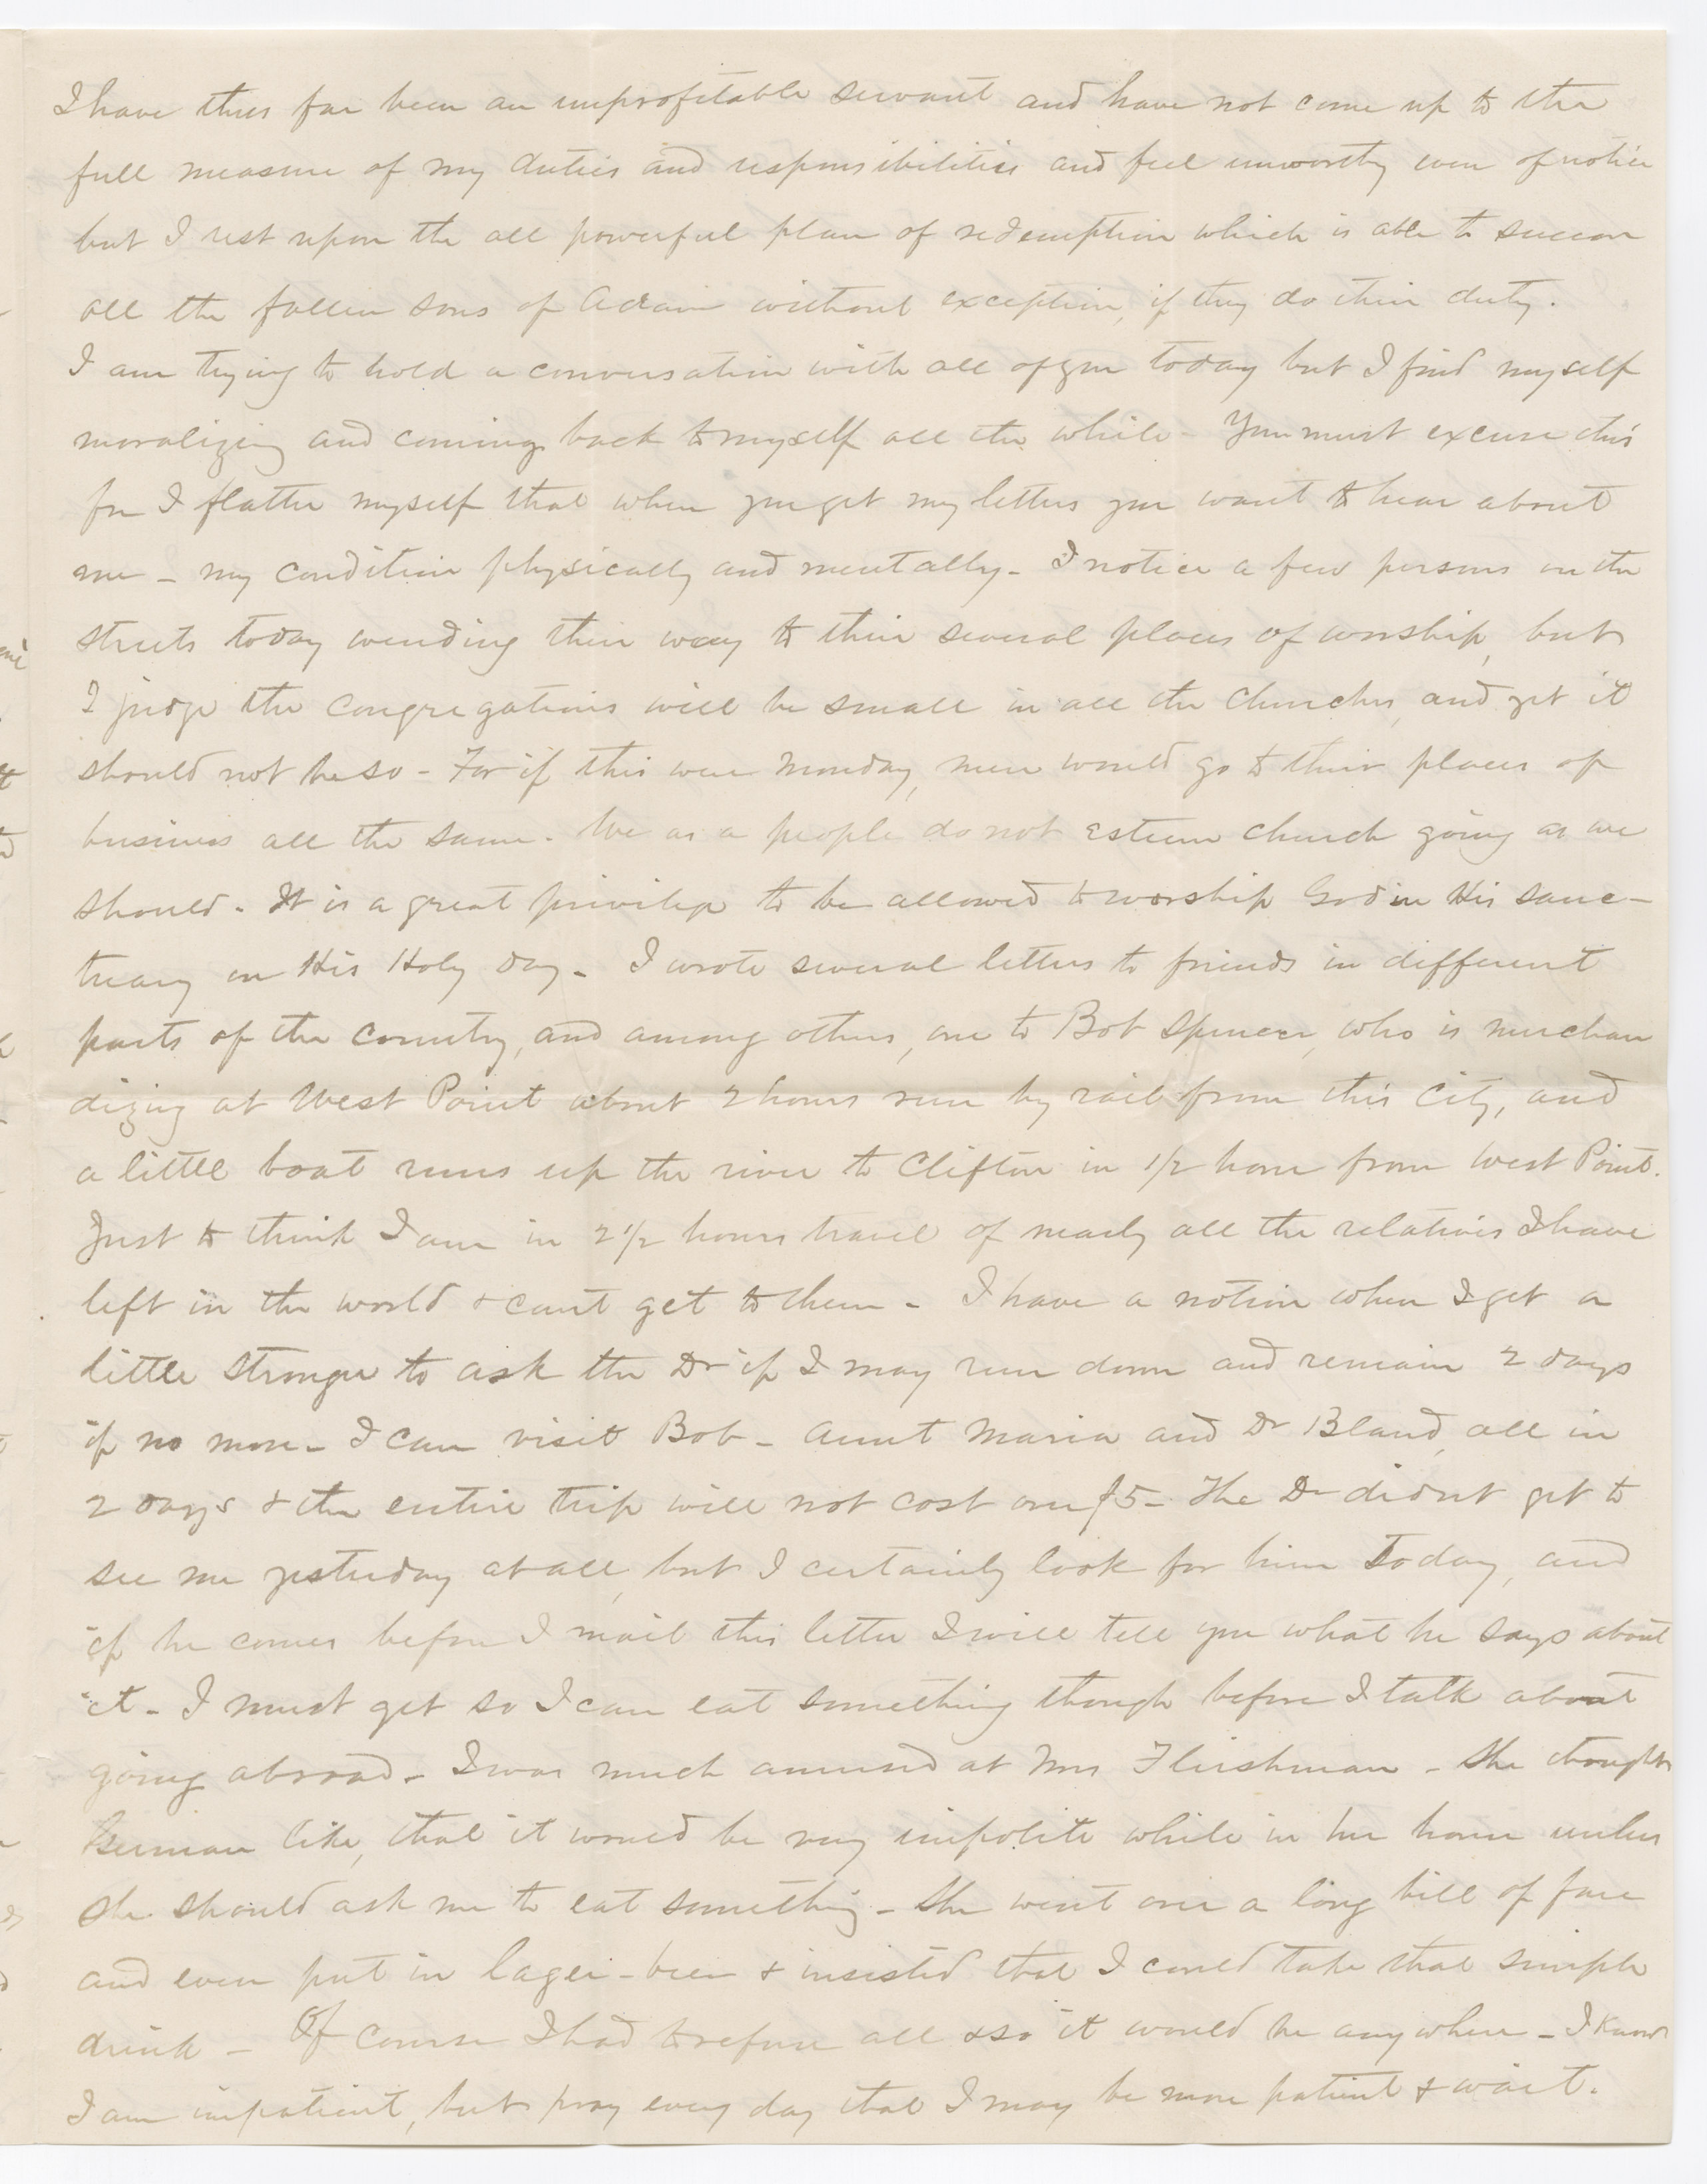 I have thus far been an unprofitable servant and have not come up to the
full measure of my duties and responsibilities and feel unworthy even of notice
but I rest upon the all powerful plan of redemption which is able to succor
all the fallen sons of Adam without exception, if they do their duty.
I am trying to hold a conversation with all of you today but I find myself
moralizing and coming back to myself all the while - You must excuse this
for I flatter myself that when you get my letters you want to hear about
me - my condition physically and mentally - I notice a few persons on the
streets today wending their way to their several places of worship, but
I judge the congregations will be small in all the churches, and yet it
should not be so - For if this were Monday, men would go to their places of
business all the same. We as a people do not esteem church going as we
should. It is a great privilege to be allowed to worship God in His sanc-
tuary on His Holy day - I wrote several letters to friends in different
parts of the country, and among others, one to Bob Spencer, who is merchan
dizing at West Point about 2 hours run by rail from this City, and
a little boat runs up the river to Clifton in 1/2 hour from West Point.
Just to think I am in 2 1/2 hours travel of nearly all the relatives I have
left in the world & can't get to them - I have a notion when I get a
little stronger to ask the Dr if I may run down and remain 2 days
if no more - I can visit Bob - Aunt Maria and Dr Bland, all in
2 days & the entire trip will not cost over $5 - The Dr didn't get to
see me yesterday at all, but I certainly look for him today, and
if he comes before I mail this letter I will tell you what he says about
it - I must get so I can eat something though before I talk about
going abroad - I was much amused at Mrs Fleishman - She thought
German like, that it would be very impolite while in her house unless
she should ask me to eat something - She went over a long bill of fare
and even put in lager-beer & insisted that I could take that simple
drink - Of course I had to refuse all & so it would be any where - I know
I am impatient, but pray every day that I may be more patient & wait.